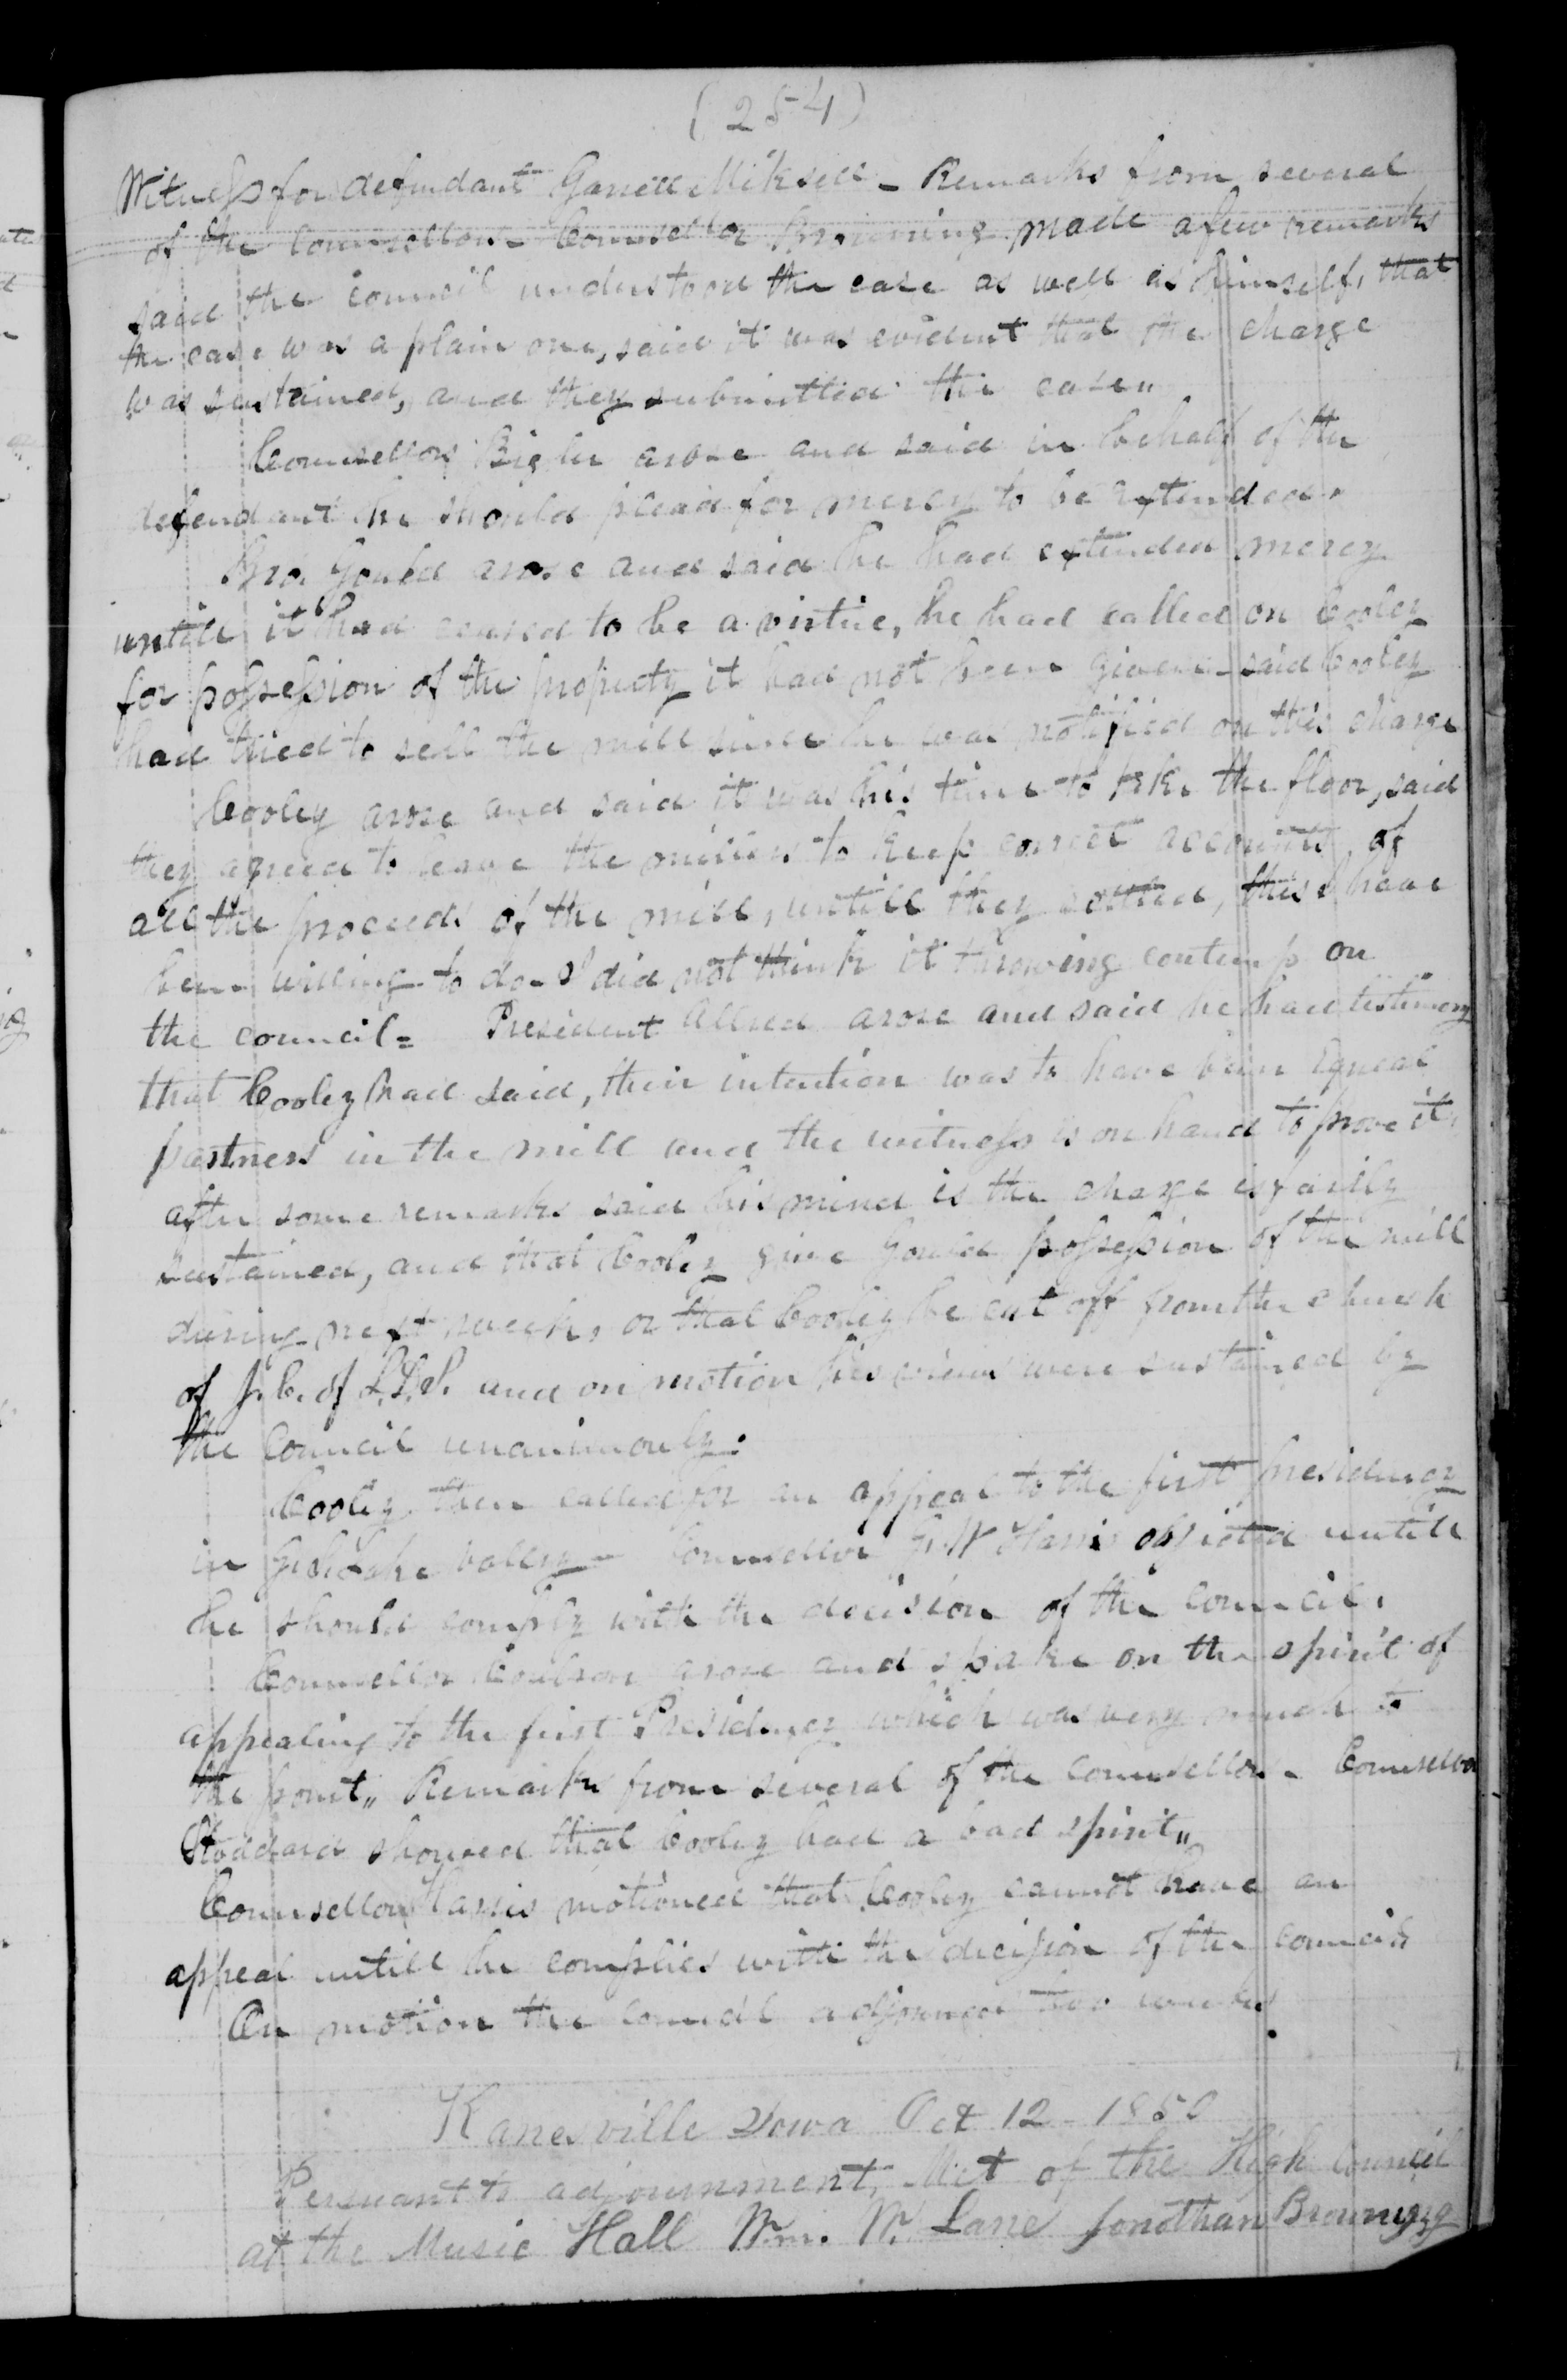 (254)
Witness for defendant Garrett Miksell - Remarks from several
of the Counsellors - Counsellor Browning made a few remarks
said the council understood the case as well as himself, that
the case was a plain one, said it was evident that the charge
was sustained, and they submitted the case"
Counsellor Bigler arose and said in behalf of the
defendant he should plead for mercy to be extended.
Bro. Gould arose and said he had extended mercy
untill it had ceased to be a virtue, he had called on Cooley
for possession of the property it had not been given - said Cooley
had tried to sell the mill since he was notified on this charge
Cooley arose and said it was his time to take the floor, said
they agreed to leave the millers to keep correct accounts of
all the proceeds of the mill, untill they settled, this I have
been willing to do - I did not think it throwing contemp on
the council = President Allred arose and said he had testimony
that Cooley had said, their intention was to have been Equeal
partners in the mill and the witness is on hand to prove it,
after some remarks said his mind is the charge is fairly
sustained, and that Cooley give Gould possession of the mill
during next week, or that Cooley be cut off from the church
of J. C. of L.D.S. and on motion his views were sustained by
the Council unanimously.
Cooley then called for an appeal to the first presidency
in Salt Lake valley - Counsellor G. W Harris objected untill
he should comply with the decision of the council.
Counsellor Coulson arose and spake on the spirit of
appealing to the first Presidency which was very much to
the point,, Remarks from several of the counsellors - Counsellor
Stoddard showed that Cooley had a bad spirit"
Counsellor Harris motioned that Cooley cannot have an
appeal untill he complies with the decission of the council,
On motion the council adjourned two weeks
Kanesville Iowa Oct 12 - 1850
Persuant to adjournment, Met of the High Council
at the Music Hall Wm. W. Lane Jonathan Browning